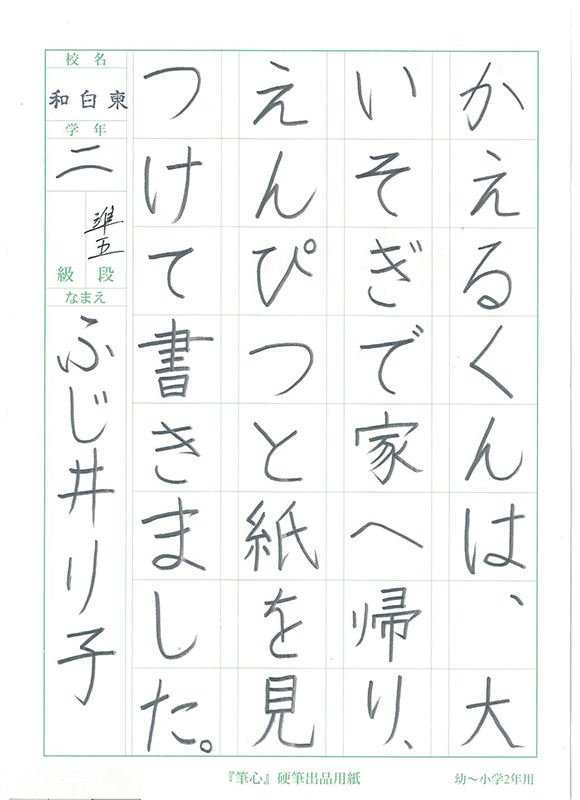 かえるくんは、大
いそぎで家へ帰り、
えんぴつと紙を見
つけて書きました。
校名
和白東
学年
二
準五
級 段
なまえ
ふじ井り子
『筆心』硬筆出品用紙
幼〜小学2年用